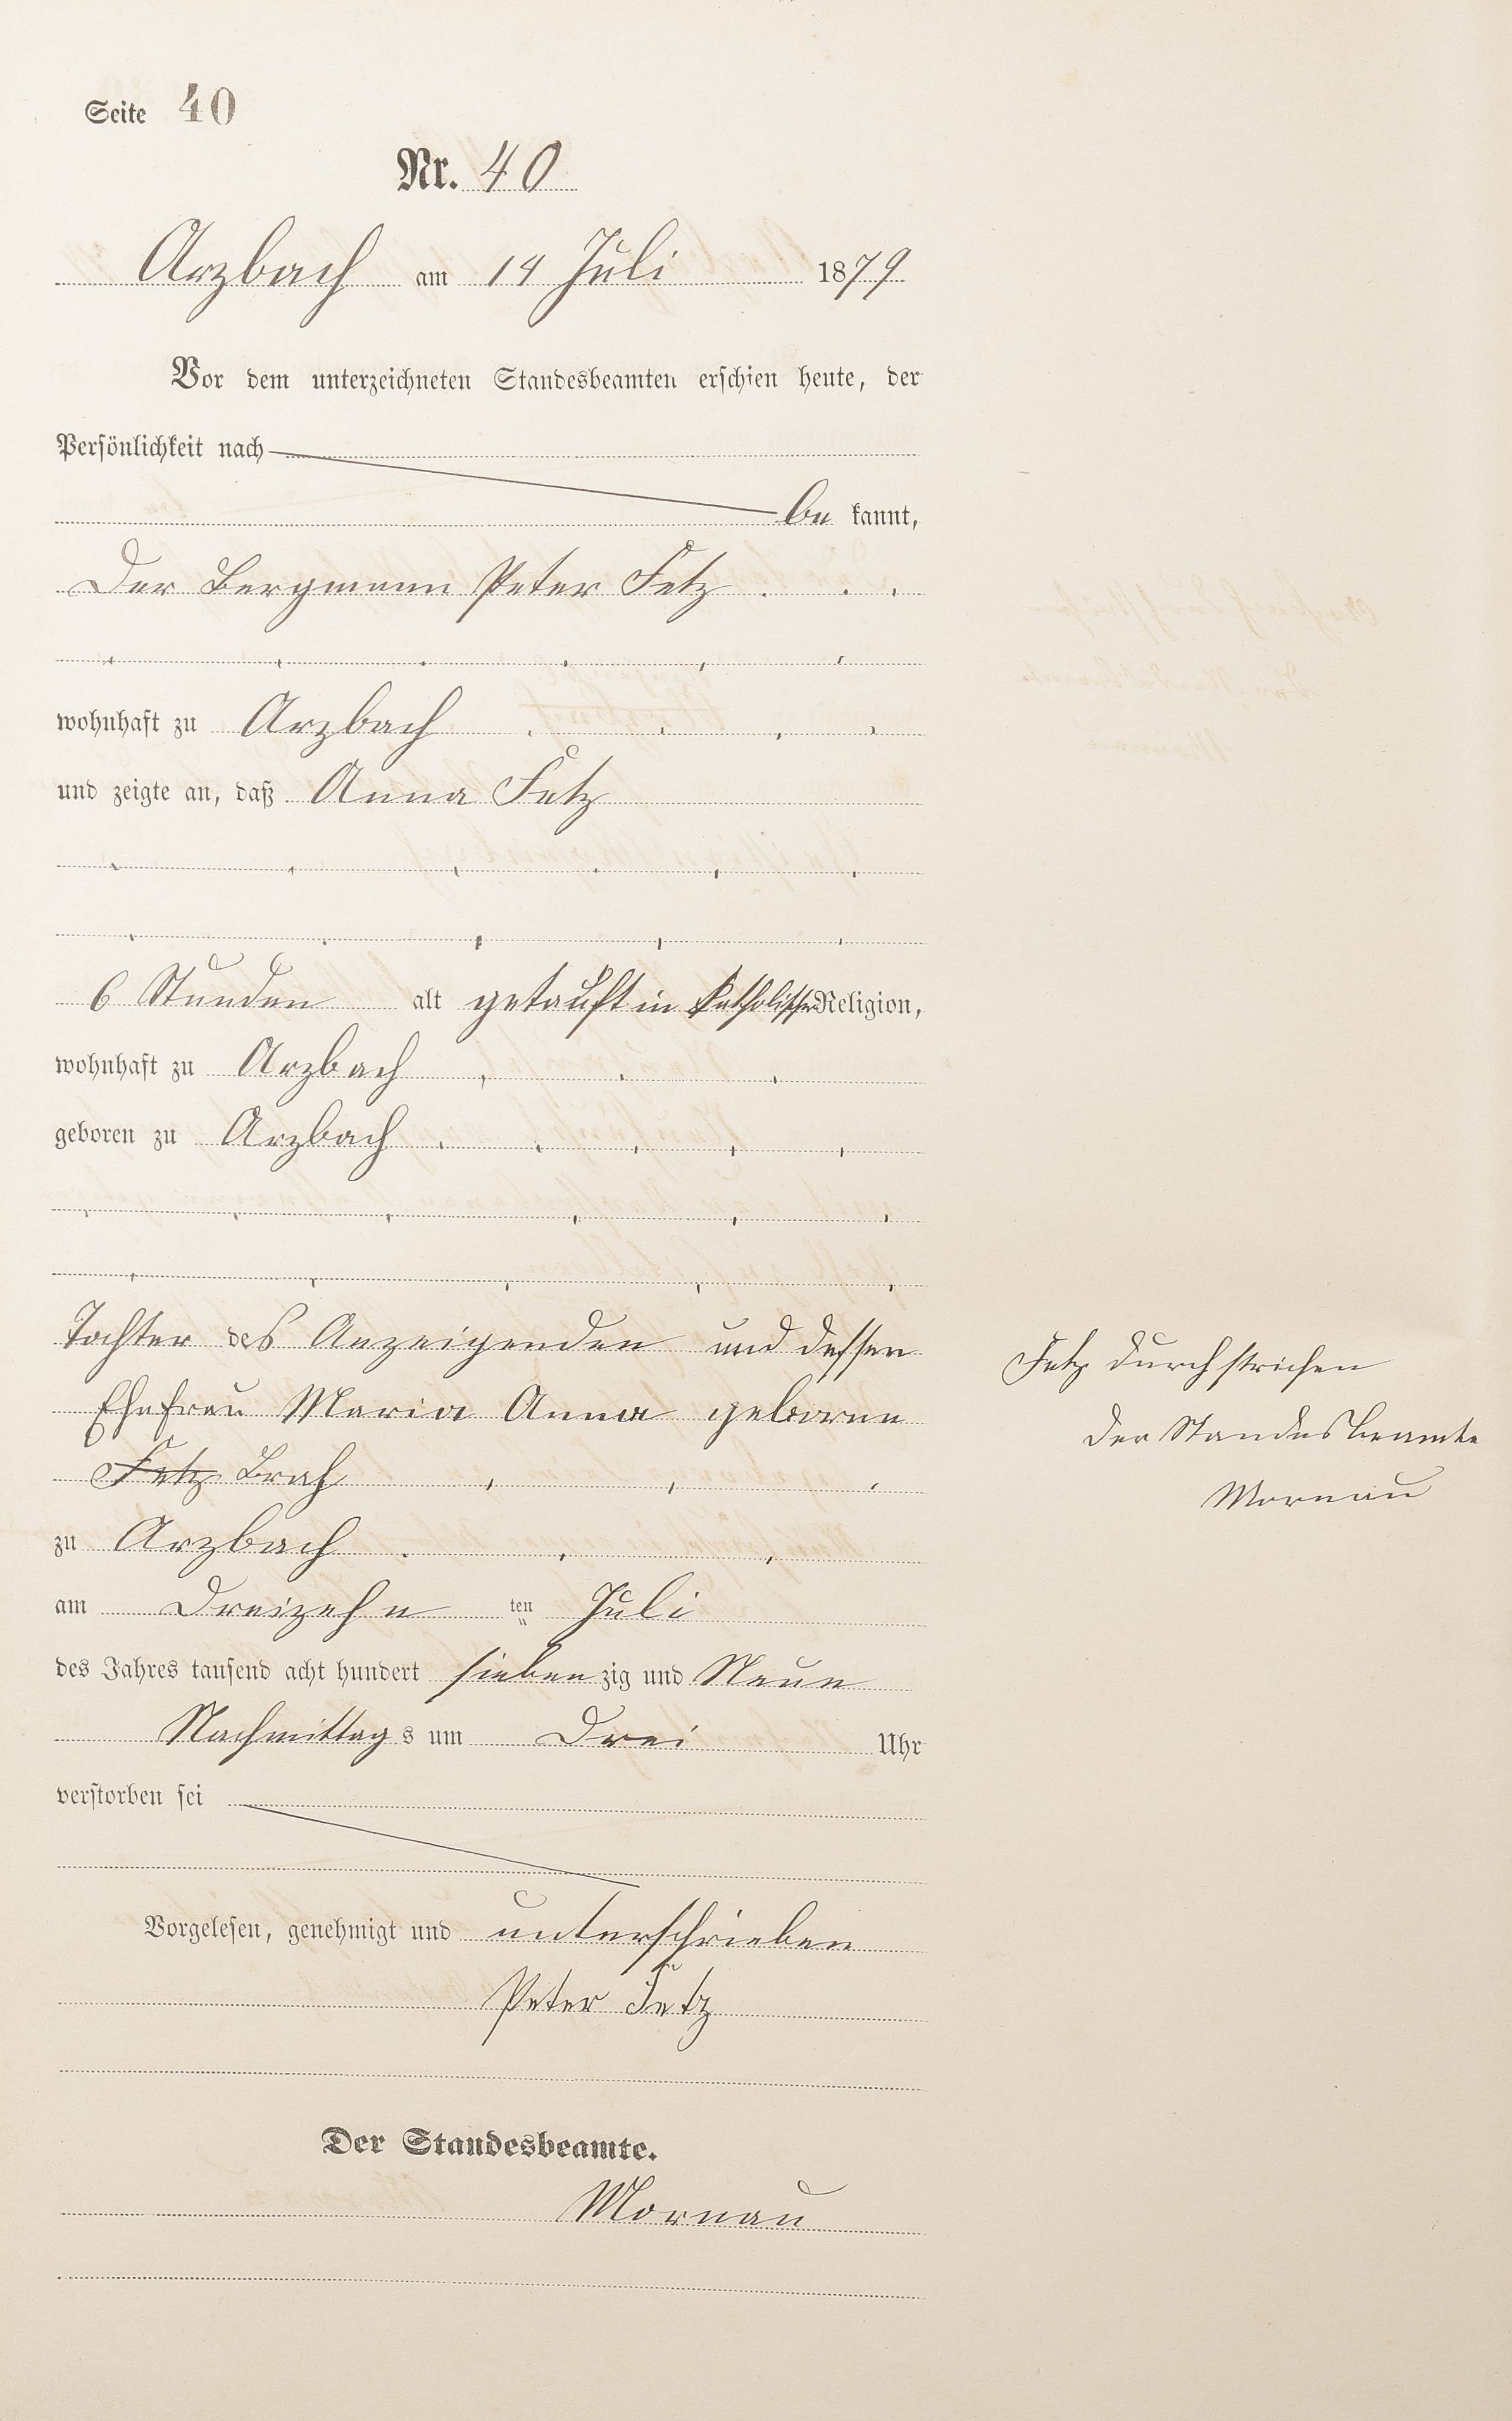 Seite 40
Nr. 40
Arzbach am 14 Juli 1879
Vor dem unterzeichneten Standesbeamten erschien heute, der
Persönlichkeit nach
be kannt,
Der Bergmann Peter Fetz
wohnhaft zu Arzbach
und zeigte an, daß Anna Fetz
6 Stunden alt getauft in katholischer Religion,
wohnhaft zu Arzbach
geboren zu Arzbach
Tochter des Anzeigenden und dessen
Ehefrau Maria Anna geborne
Fetz Brah
zu Arzbach
am Dreizehn ten Juli
des Jahres tausend acht hundert sieben zig und Neun
Nachmittag s um Drei Uhr
verstorben sei
Vorgelesen, genehmigt und unterschrieben
Peter Fetz
Der Standesbeamte.
Mornau
Fetz durchstrichen
der Standesbeamte
Mornau